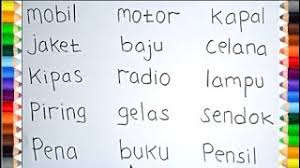 mobil motor kapal
jaket baju celana
Kipas radio lampu
Piring gelas sendok
Pena buku Pensil